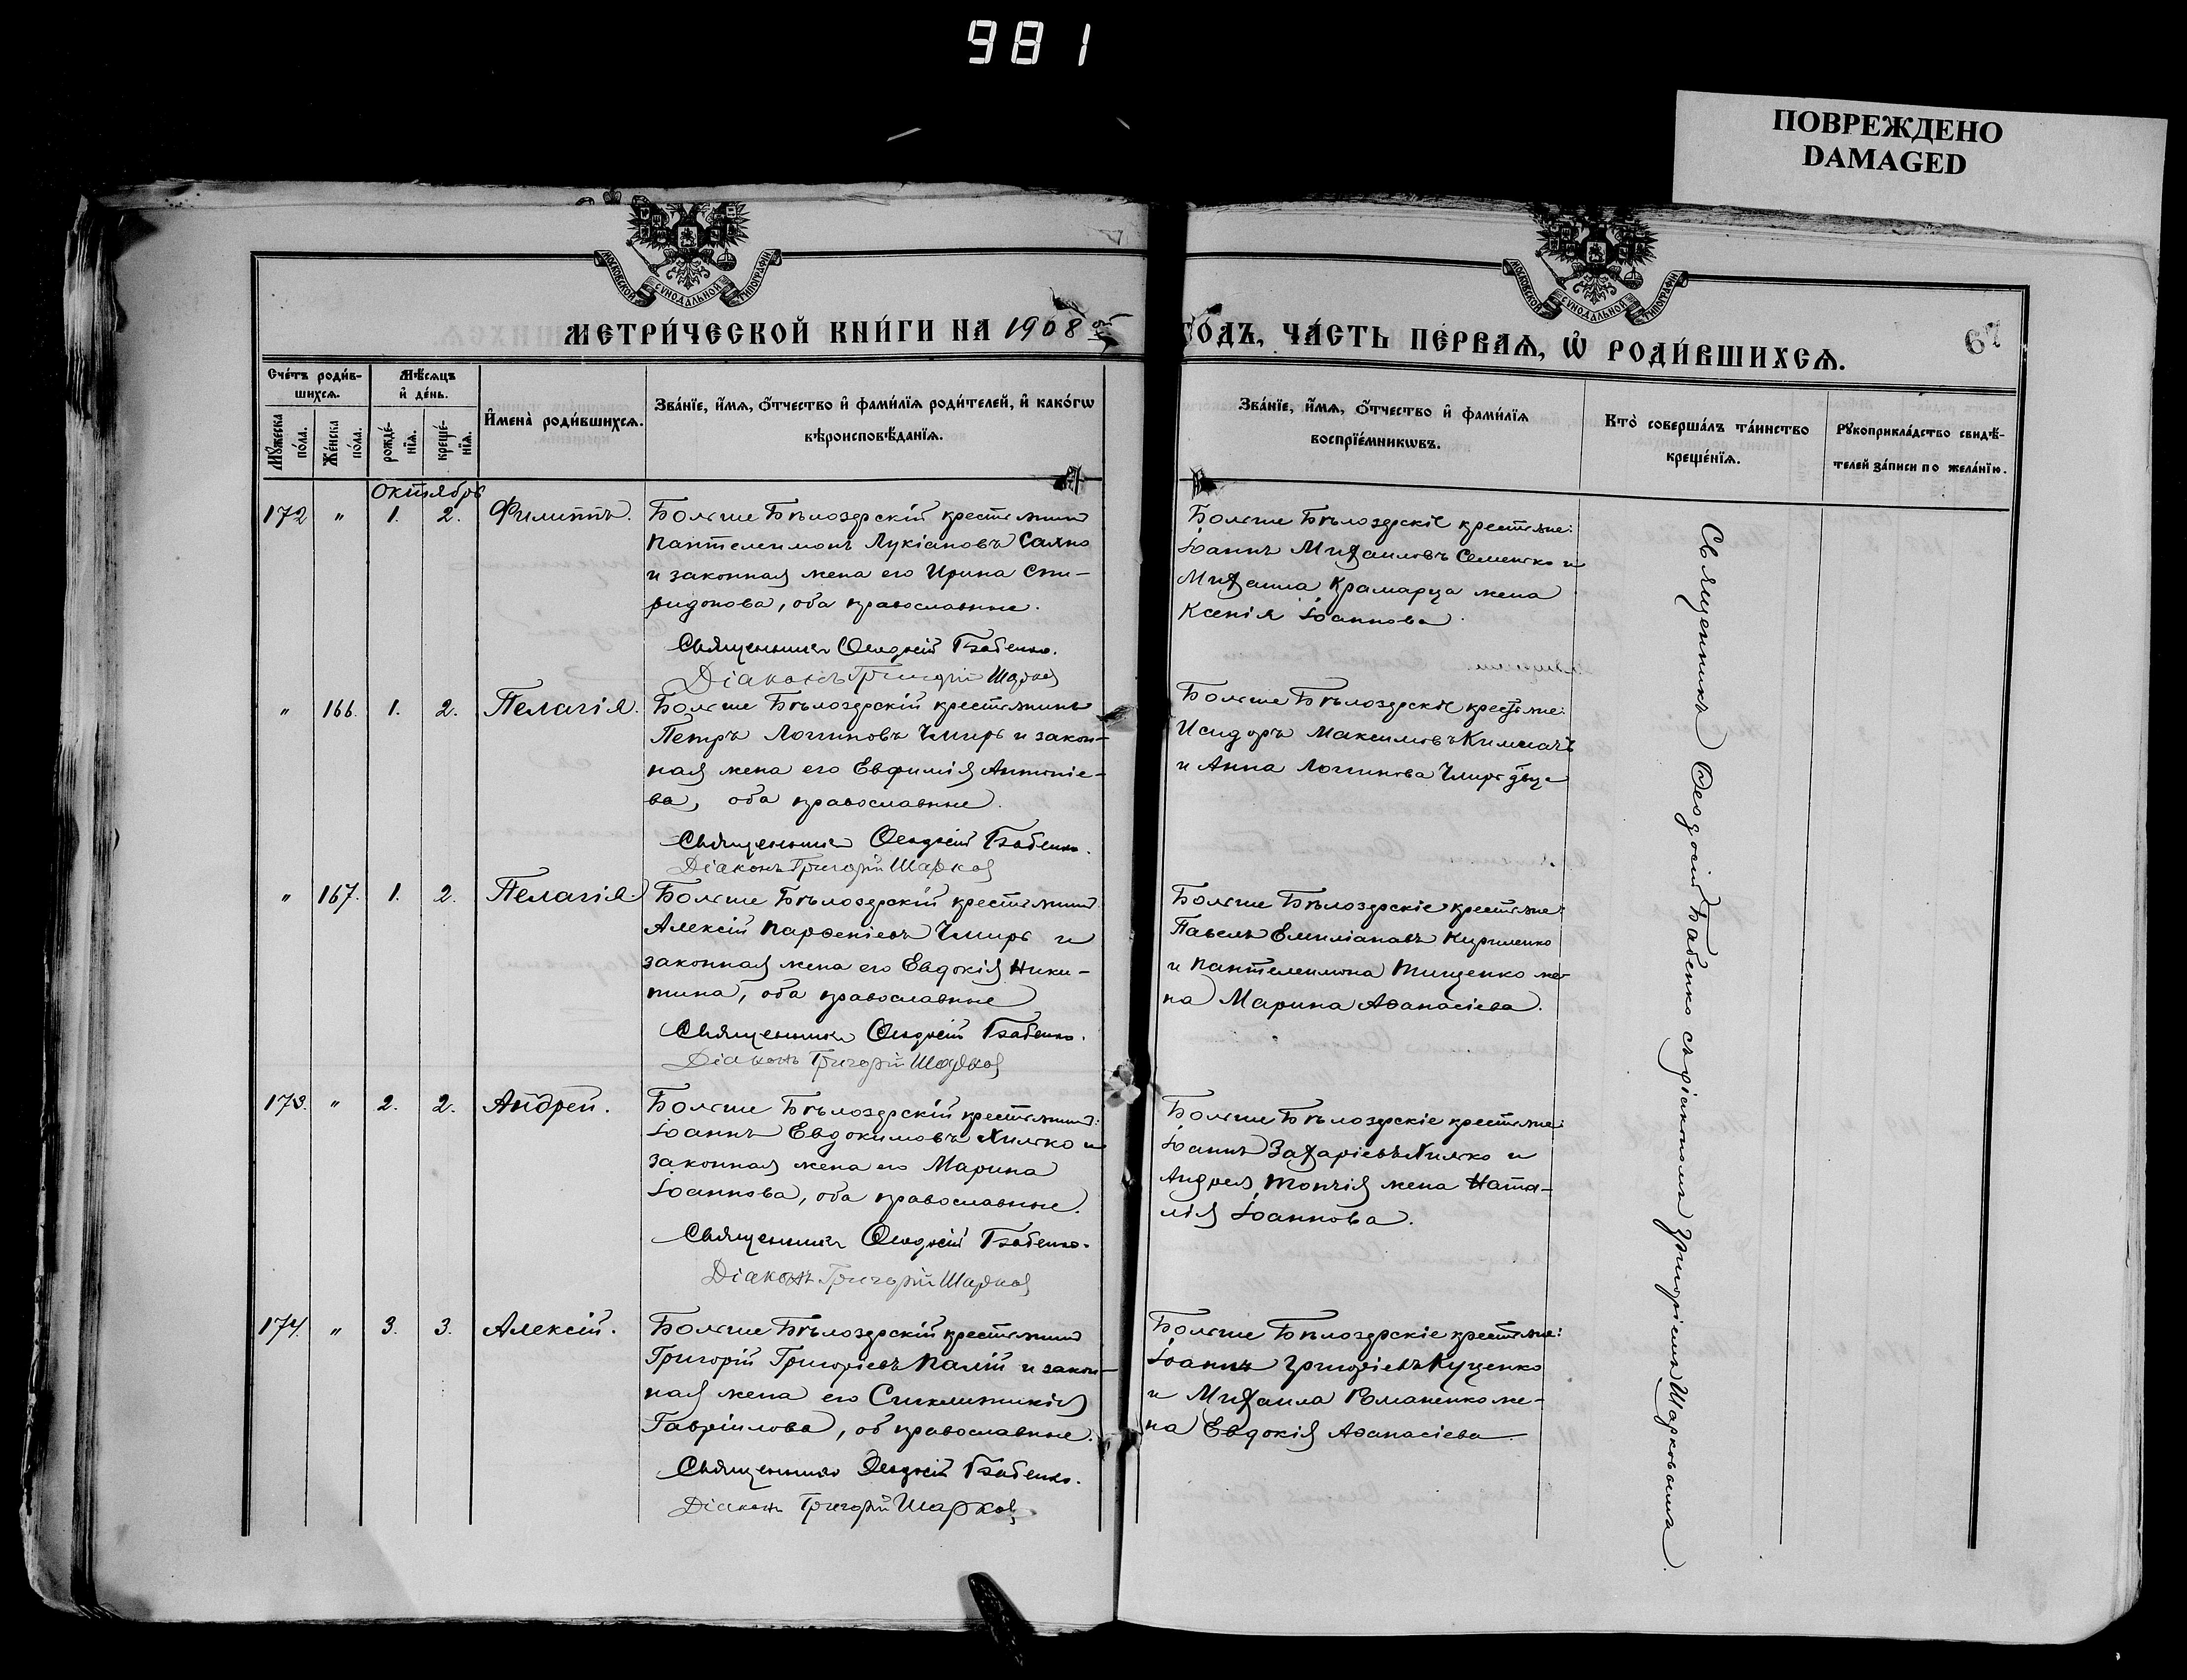 981
ПОВРЕЖДЕНО
DAMAGED
МОСКОВСКОЙ СѴНОДАЛЬНОЙ ТИПОГРАФІИ
МОСКОВСКОЙ СѴНОДАЛЬНОЙ ТИПОГРАФІИ
МЕТРИ́ЧЕСКОЙ КНИ́ГИ НА 1908 ой
ГОДЪ, ЧА́СТЬ ПЕ́РВАѦ, Ѡ РОДИ́ВШИХСѦ.
67
Сче́тъ роди́в-
шихсѧ.
Мѣ́сѧцъ
и҆ де́нь.
Мꙋ́жеска по́ла.
Же́нска по́ла.
рожде́-
нїѧ.
креще́-
нїѧ.
И҆мена̀ роди́вшихсѧ.
Зва́нїе, и҆́мѧ, ѻ҆́тчество и҆ фами́лїѧ роди́телей, и҆ како́гѡ
вѣроисповѣ́данїѧ.
Зва́нїе, и҆́мѧ, ѻ҆́тчество и҆ фами́лїѧ
воспрїе́мникѡвъ.
Кто̀ соверша́лъ та́инство
креще́нїѧ.
Рꙋкоприкла́дство свидѣ́-
телей за́писи по жела́нїю.
Октябрь
172 " 1. 2. Филиппъ.
Больше Бѣлозерскій крестьянинъ
Пантелеимонъ Лукіановъ Саяно
и законная жена его Ирина Спи-
ридонова, оба православные.
Священникъ Ѳеодосій Бабенко.
Діаконъ Григорій Шарков
Больше Бѣлозерскіе крестьяне:
Іоаннъ Михаиловъ Семенко и
Михаила Крамарца жена
Ксенія Іоаннова.
" 166. 1. 2. Пелагія.
Больше Бѣлозерскій крестьянинъ
Петръ Логиновъ Чмирь и закон-
ная жена его Евфимія Антоніе-
ва, оба православные.
Священникъ Ѳеодосій Бабенко.
Діаконъ Григорій Шарков
Больше Бѣлозерскіе крестьяне:
Исидоръ Максимовъ
и Анна Логинова Чмирь дѣвица
" 167. 1. 2. Пелагія
Больше Бѣлозерскій крестьянинъ
Алексій Парѳеніевъ Чмирь и
законная жена его Евдокія Ники-
тина, оба православные
Священникъ Ѳеодосій Бабенко.
Діаконъ Григорій Шарков
Больше Бѣлозерскіе крестьяне:
Павелъ Емиліановъ Кириленко
и Пантелеимона Тищенко же-
на Марина Аѳанасіева.
173. " 2. 2. Андрей.
Больше Бѣлозерскій крестьянинъ:
Іоаннъ Евдокимовъ Хилько и
законная жена его Марина
Іоаннова, оба православные.
Священникъ Ѳеодосій Бабенко.
Діаконъ Григорій Шарков
Больше Бѣлозерскіе крестьяне:
Іоаннъ Захаріевъ Хилько и
Андрея Топчія жена Ната-
лія Іоаннова.
174. " 3. 3. Алексій.
Больше Бѣлозерскій крестьянинъ
Григорій Григоріевъ Палій и закон-
ная жена его Синклитикія
Гавріилова, об православные.
Священникъ Ѳеодосій Бабенко.
Діаконъ Григорій Шарков
Больше Бѣлозерскіе крестьяне:
Іоаннъ Григоріевъ Куценко
и Михаила Романенко же-
на Евдокія Аѳанасіева
Священникъ Ѳеодосій Бабенко съ діакономъ Григоріемъ Шарковымъ.